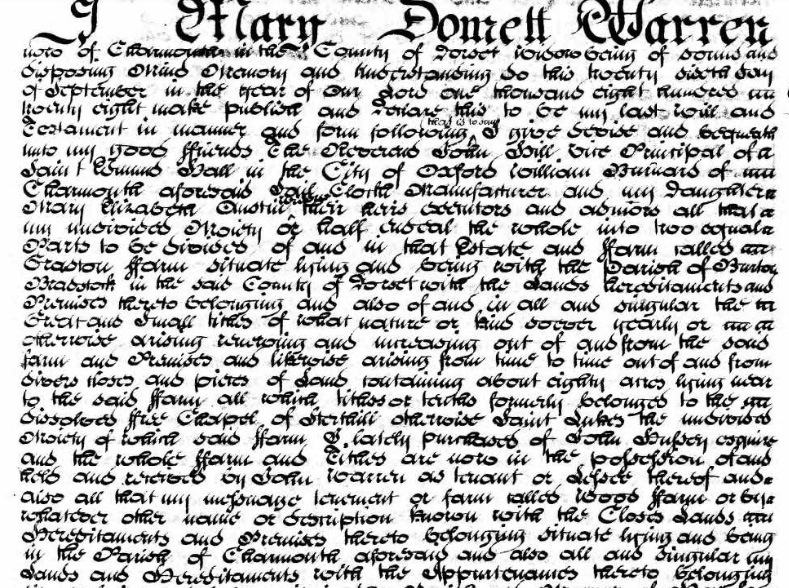 I Mary Domett Warren
now of Charmouth in the County of Dorset widow being of sound and
disposing Mind Memory and Understanding do this twenty sixth day
of September in the year of Our Lord one thousand eight hundred
twenty eight make publish and Declare this to be my last will and
Testament in manner and form following that is to say I give devise and bequeath
unto my good ffriends The Reverend John Hill Vice Principal of
Saint Edmund Hall in the City of Oxford William Burnard of
Charmouth aforesaid Sail Cloth Manufacturer and my Daughter
Mary Elizabeth Austin their heirs executors and admors all that
my undivided Moiety or half endeal the whole into two equal
Parts to be divided of and in that Estate and ffarm called
Graston ffarm situate lying and being with the Parish of Burton
Bradstock in the said County of Dorset with the Lands hereditaments and
Premises thereto belonging and also of and in all and singular the
Great and Small tithes of what nature or kind soever yearly or
otherwise arising renewing and increasing out of and from the said
farm and Premises and likewise arising from time to time out of and from
divers closes and pieces of Land containing about eighty acres lying near
to the said ffarm all which tithes or tenths formerly belonged to the
dissolved ffree Chapel of Sterthill otherwise Saint Lukes the undivided
Moiety of which said ffarm I lately purchased of John Hussey esquire
and the whole ffarm and Tithes are now in the possession of and
held and rented by John Warren as tenant or Lessee thereof and
also all that my messuage tenement or farm called Woods ffarm or by
whatever other name or description known with the Closes Lands
Hereditaments and Premises thereto belonging situate lying and being
in the Parish of Charmouth aforesaid and also all and singular my
Lands and Hereditaments with the Appurtenances thereto belonging